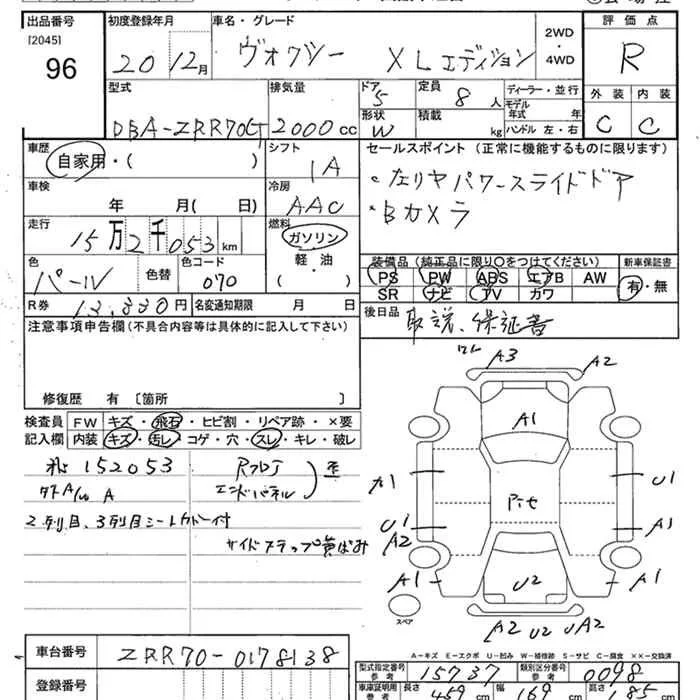 出品番号
[2045]
96
初度登録年月
20 12月
車名・グレード
ヴォクシー XLエディション
2WD
・
4WD
評価点
R
型式
DBA-ZRR70G
排気量
2000cc
ドア
5
形状
W
定員
8人
積載
kg
ディーラー・並行
モデル
年式 年
ハンドル 左・右
外装 内装
C C
車歴
自家用・( )
シフト
IA
セールスポイント (正常に機能するものに限ります)
・左リヤパワースライドドア
・Bカメラ
車検
年 月(日)
冷房
AAC
走行
15万2千053km
燃料
ガソリン
軽・油
・( )
色
パール
色替
色コード
070
装備品(純正品に限り○をつけてください)
PS PW ABS エアB AW
SR ナビ TV カワ
新車保証書
有・無
R券 12,830円
名変通知期限 月 日
後日品 取説、保証書
注意事項申告欄(不具合内容等は具体的に記入して下さい)
修復歴 有 〔箇所 〕
検査員
記入欄
FW キズ・飛石・ヒビ割・リペア跡・×要
内装 キズ・汚レ・コゲ・穴・スレ・キレ・破レ
152053
Rフロア
エンドパネル
歪
2列目、3列目シートカバー付
サイドステップ黄ばみ
ワレ A3 A2
A1
A1 U1
U1
A2
A1
A1 A1
U2
A2 U2 UA2
スペア
A-キズ E-エクボ U-凹み W-補修跡 S-サビ C-腐食 ××-交換済
車台番号 ZRR70-0178138
登録番号
型式指定番号
参考
15737
類別区分番号
参考
0098
車庫証明用
参考
長さ 459cm 幅 169cm 高さ 185cm